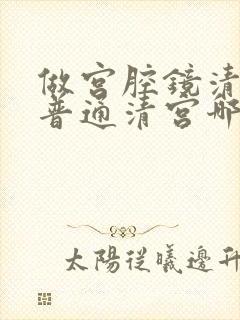 做宫腔鏡清
普通清宫哪
太陽從曦邊升